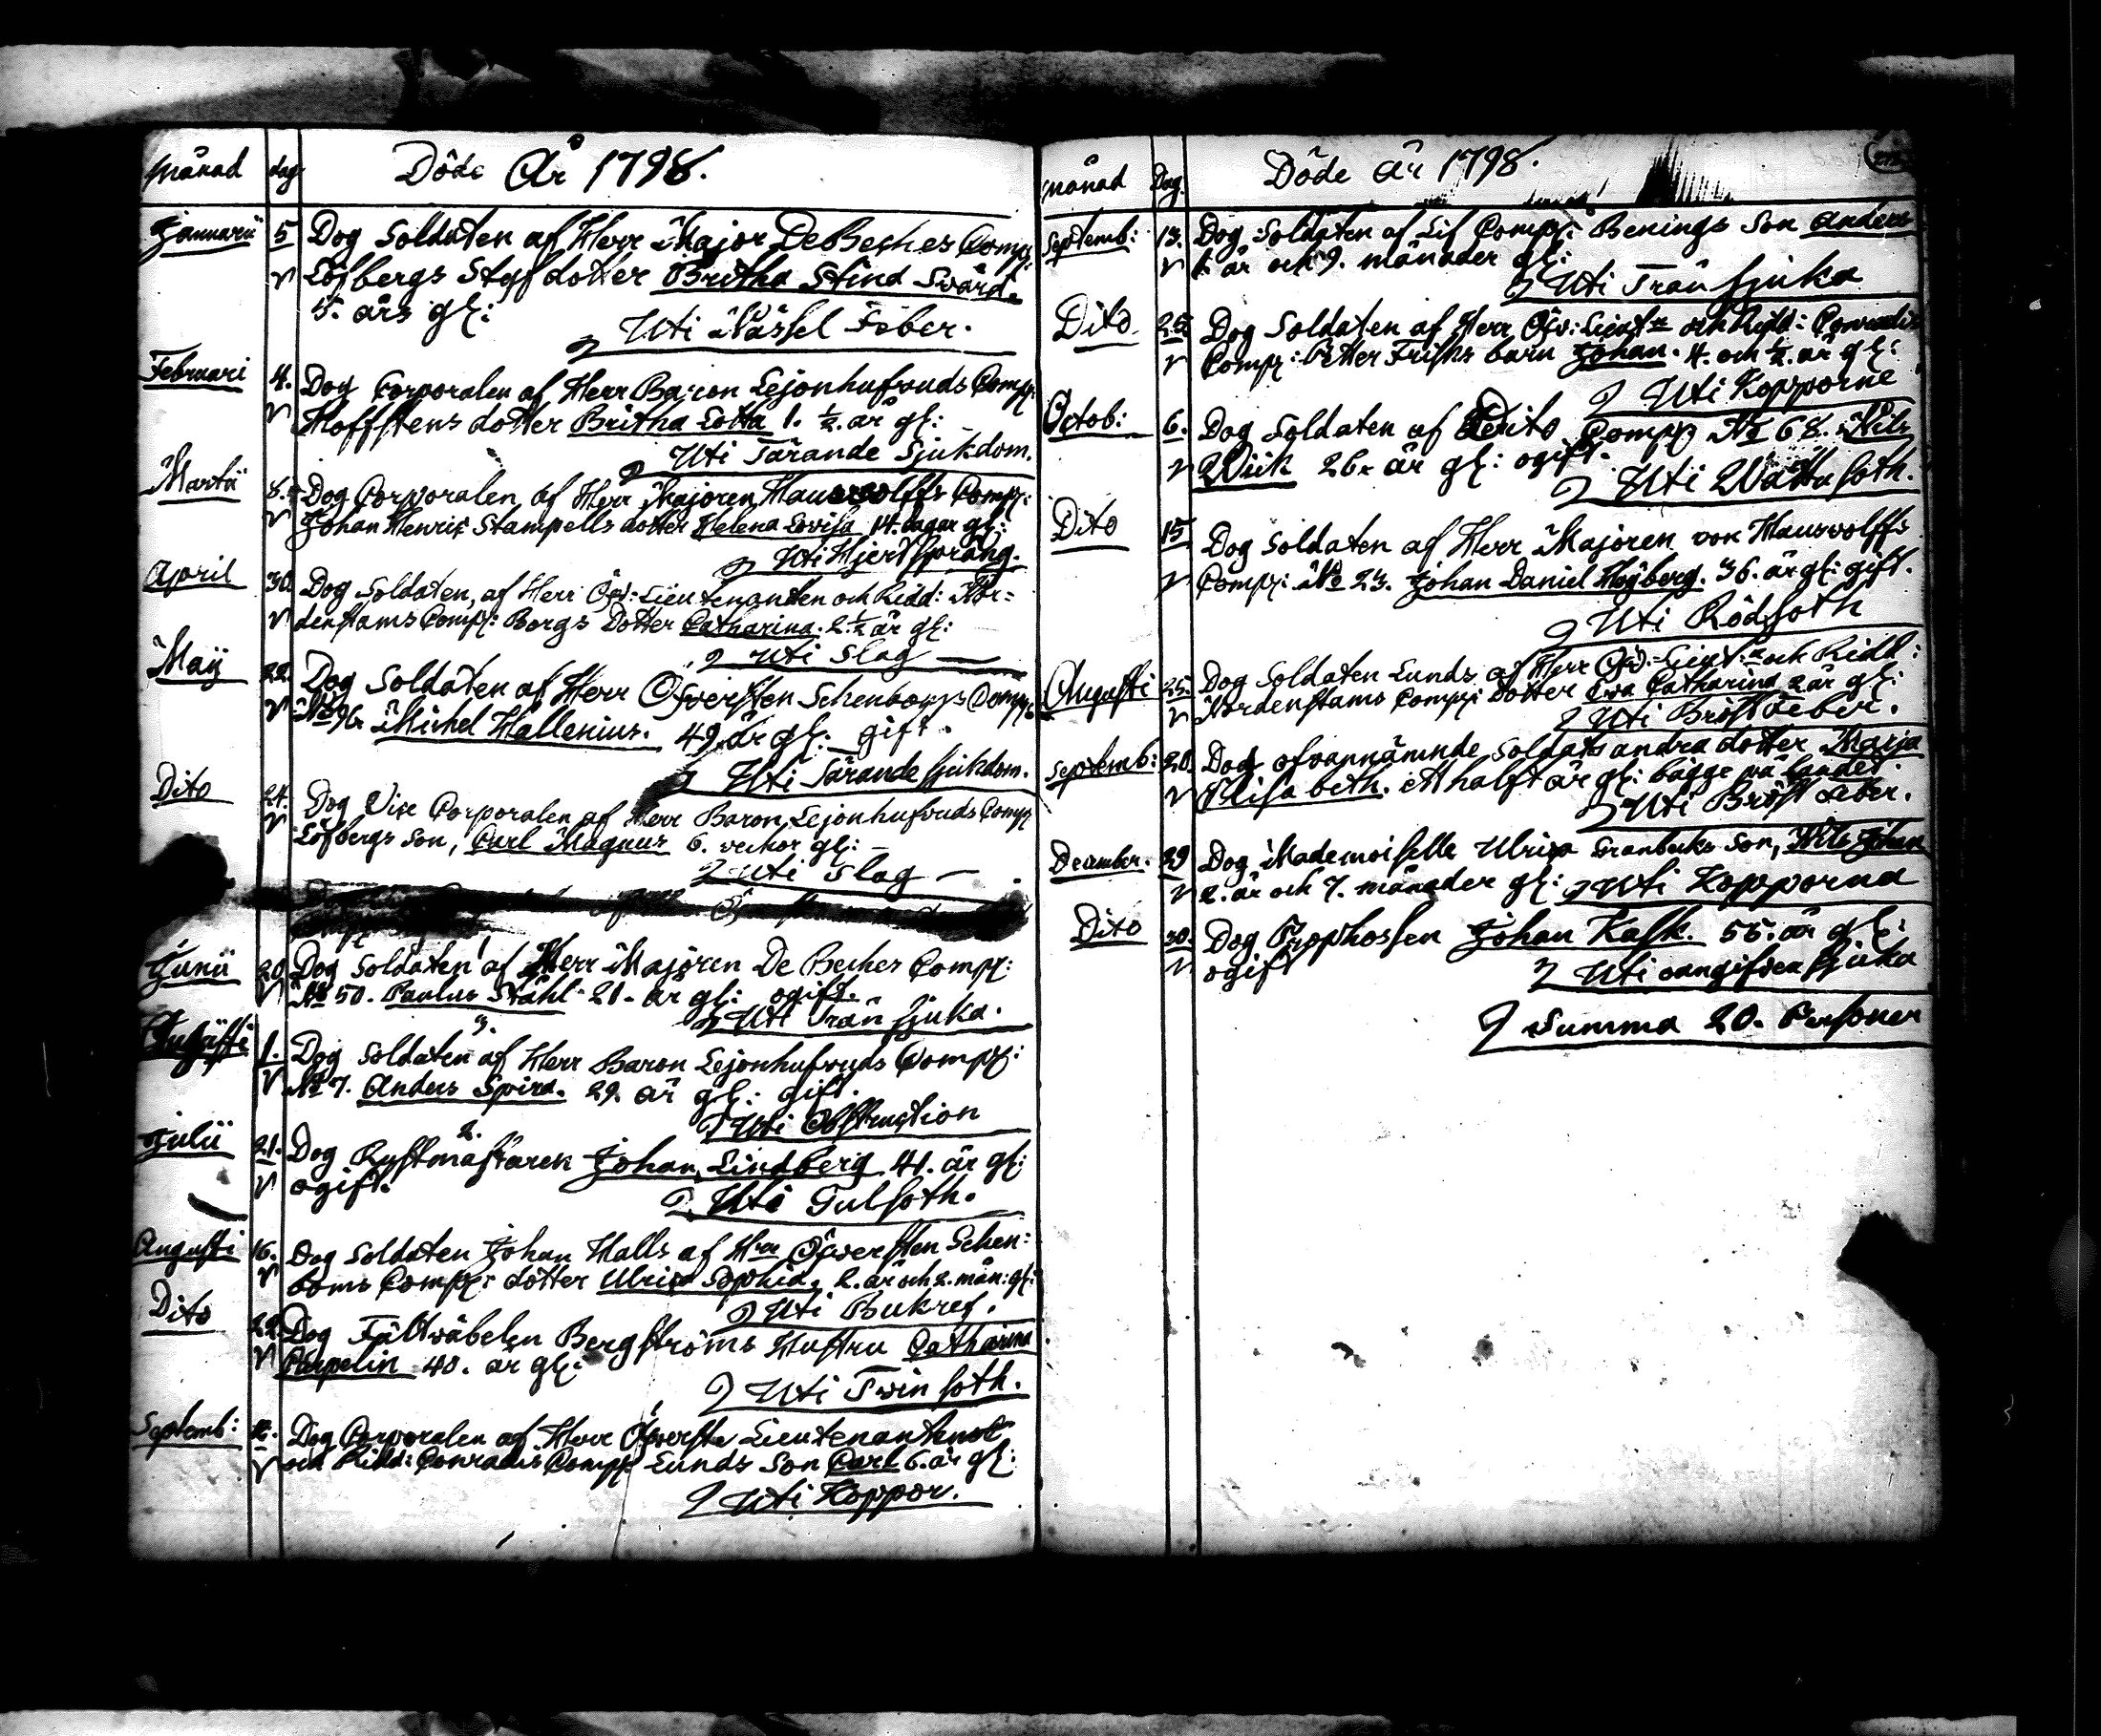 Månad dag Döde År 1798.
Januarii 5 Dog Soldaten af Herr Major DeBeches Comp:
Löfbergs Styfdotter Britha Stina Svärd.
5. års gl:
Uti Nässel Feber.
Februari 4. Dog Corporalen af Herr Baron Lejonhufvuds Comp:
Hoffstens dotter Britha Lotta 1. ½ år gl:
Uti Tärande Sjukdom.
Martii 8. Dog Corporalen af Herr Majoren Hauswolffs Comp:
Johan Henric Stampells dotter Helena Lovisa 14. dagar gl:
Uti Hjertsprång.
April 30. Dog Soldaten, af Herr Öfv: Lieutenanten och Ridd: Nor=
denstams Comp: Borgs Dotter Catharina. 2. ½ år gl:
Uti Slag
Maij 22. Dog Soldaten af Herr Öfversten Schenboms Comp:
No 96. Michel Hallenius. 49. år gl: gift.
Uti Tärande sjukdom.
Dito 24. Dog Vice Corporalen af Herr Baron Lejonhufvuds Comp:
Löfbergs Son, Carl Magnus 6. veckor gl:
Uti Slag
Junii 20 Dog Soldaten af Herr Majoren De Beches Comp:
No 50. Paulus Ståhl. 21. år gl: ogift.
Uti Trån sjuka.
3.
1. Dog Soldaten af Herr Baron Lejonhufvuds Comp:
No 7. Anders Spira. 29. år gl: gift.
Uti Obstruction
2.
Julii 21. Dog Rustmästaren Johan Lindberg 41. år gl:
ogift.
Uti Gulsoth.
Augusti 16. Dog Soldaten Johan Halls af Herr Öfversten Schen:
boms Comp: dotter Ulrica Sophia, 2. år och 2. mån: gl:
Uti Bukref.
Dito 22 Dog Fältväbelen Bergströms Hustru Catharina
Carpelin 40. år gl:
Uti Tvinsoth.
Septemb: Dog Corporalen af Herr Öfverste Lieutenantens
och Ridd: Conradis Comp: Lunds Son Carl 6. år gl:
Uti Koppor.
Månad Dag. Döde År 1798.
Septemb: 13. Dog Soldaten af Lif Comp: Benings Son Anders
1. år och 9. månader gl:
Uti Trån sjuka
Dito 25 Dog Soldaten af Herr Öfv: Lieut: och Ridd: Conradis
Comp: Petter Frisks barn Johan. 4. och ½. år gl:
Uti Kopporne
Octob: 6. Dog Soldaten af Dito Comp No 68. Nils
Wiik 26. år gl: ogift.
Uti Wattusoth.
Dito 15 Dog Soldaten af Herr Majoren von Hauswolffs
Comp: No 23. Johan Daniel Högberg. 36. år gl: gift.
Uti Rödsoth
Augusti 25. Dog Soldaten Lunds af Herr Öfv: Lieut: och Ridd:
Nordenstams Comp: dotter Eva Catharina 2 år gl:
Uti Bröst Feber.
Septemb: 20. Dog ofvannämnde Soldats andra dotter Maria
Elisabeth. ett halft år gl: bägge på landet.
Uti Bröst Feber.
December. 29 Dog Mademoiselle Ulrica Son, Nils Johan
2. år och 7. månader gl: Uti Kopporna
Dito 30. Dog Prophossen Johan Kask. 55. år gl:
ogift
Uti oangifven sjuka
Summa 20. Personer